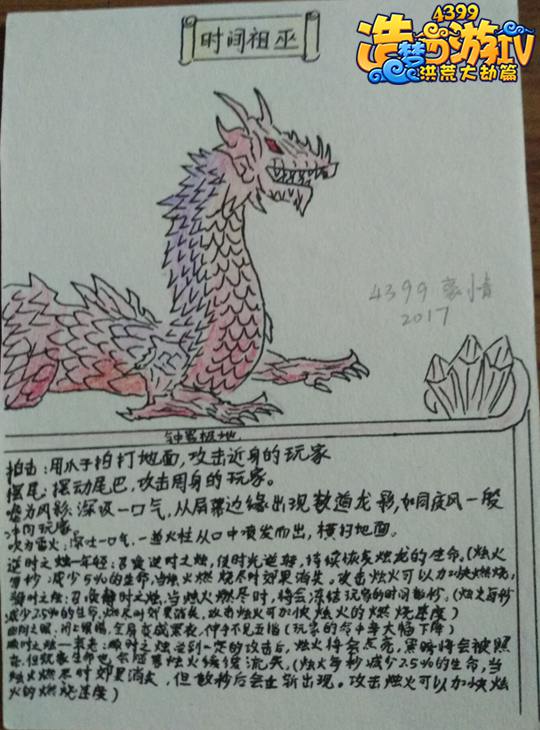 4399
造梦西游IV
洪荒大劫篇
时间祖巫
4399 豪情
2017
钟山极地
拍击:用爪子拍打地面,攻击近身的玩家
摆尾:摆动尾巴,攻击周身的玩家。
吸为风影:深吸一口气,从屏幕边缘出现数道龙影,如同疾风一般
冲向玩家。
吹为雷火:深吐一口气,一道火柱从口中喷发而出,横扫地面。
逆时之烛—年轻:召唤逆时之烛,使时光逆转,持续恢复烛龙的生命,(烛火
每秒减少5%的生命,当烛火燃烧尽时效果消失。攻击烛火可以加快燃烧,
之烛:召唤静时之烛,当烛火燃尽时,将会冻结玩家的时间数秒,(烛火每秒
减少2.5%的生命,燃尽时效果消失,攻击烛火可加快烛火的燃烧速度)
之眼:闭上眼睛,全屏变成黑夜,伸手不见五指(玩家的命中率大幅下降)
顺时之烛—衰老:顺时之烛受到一定的攻击后,烛火将会点亮,黑暗将会被照
亮,但玩家生命也会随着烛火缓缓流失,(烛火每秒减少2.5%的生命,当
烛火燃尽时效果消失,但数秒后会重新出现。攻击烛火可以加快烛
火的燃烧速度)